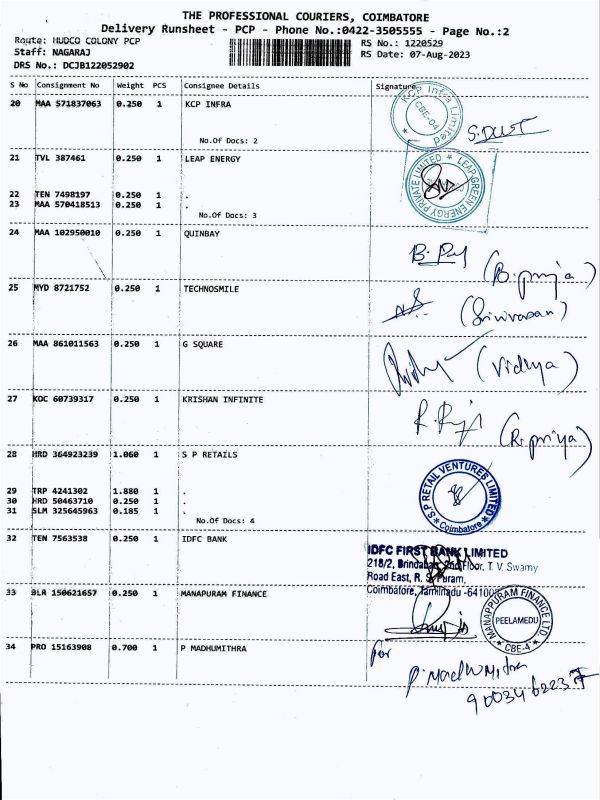 THE PROFESSIONAL COURIERS, COIMBATORE
Delivery Runsheet - PCP - Phone No.:0422-3505555 - Page No.:2
Route: HUDCO COLONY PCP RS No.: 1220529
Staff: NAGARAJ RS Date: 07-Aug-2023
DRS No.: DCJB122052902
S No Consignment No Weight PCS Consignee Details Signature
20 MAA 571837063 0.250 1 KCP INFRA
KCP Infra Limited CBE-04
No.Of Docs: 2
21 TVL 387461 0.250 1 LEAP ENERGY
LEAP GREEN ENERGY PRIVATE LIMITED
22 TEN 7498197 0.250 1 .
23 MAA 570418513 0.250 1 .
No.Of Docs: 3
24 MAA 102950010 0.250 1 QUINBAY
(B. priya)
25 MYD 8721752 0.250 1 TECHNOSMILE
(Srinivasan)
26 MAA 861011563 0.250 1 G SQUARE
(Vidhya)
27 KOC 60739317 0.250 1 KRISHAN INFINITE
(R. priya)
28 HRD 364923239 1.060 1 S P RETAILS
S P RETAIL VENTURES LIMITED Coimbatore
29 TRP 4241302 1.880 1 .
30 HRD 50463710 0.250 1 .
31 SLM 325645963 0.185 1 .
No.Of Docs: 4
32 TEN 7563538 0.250 1 IDFC BANK
IDFC FIRST BANK LIMITED
218/2, Brindavan, 2nd Floor, T. V. Swamy
Road East, R. S. Puram,
Coimbatore, Tamilnadu -64100
33 BLR 150621657 0.250 1 MANAPURAM FINANCE
MANAPPURAM FINANCE LTD PEELAMEDU CBE-4
34 PRO 15163908 0.700 1 P MADHUMITHRA
for
P. Madhumithra